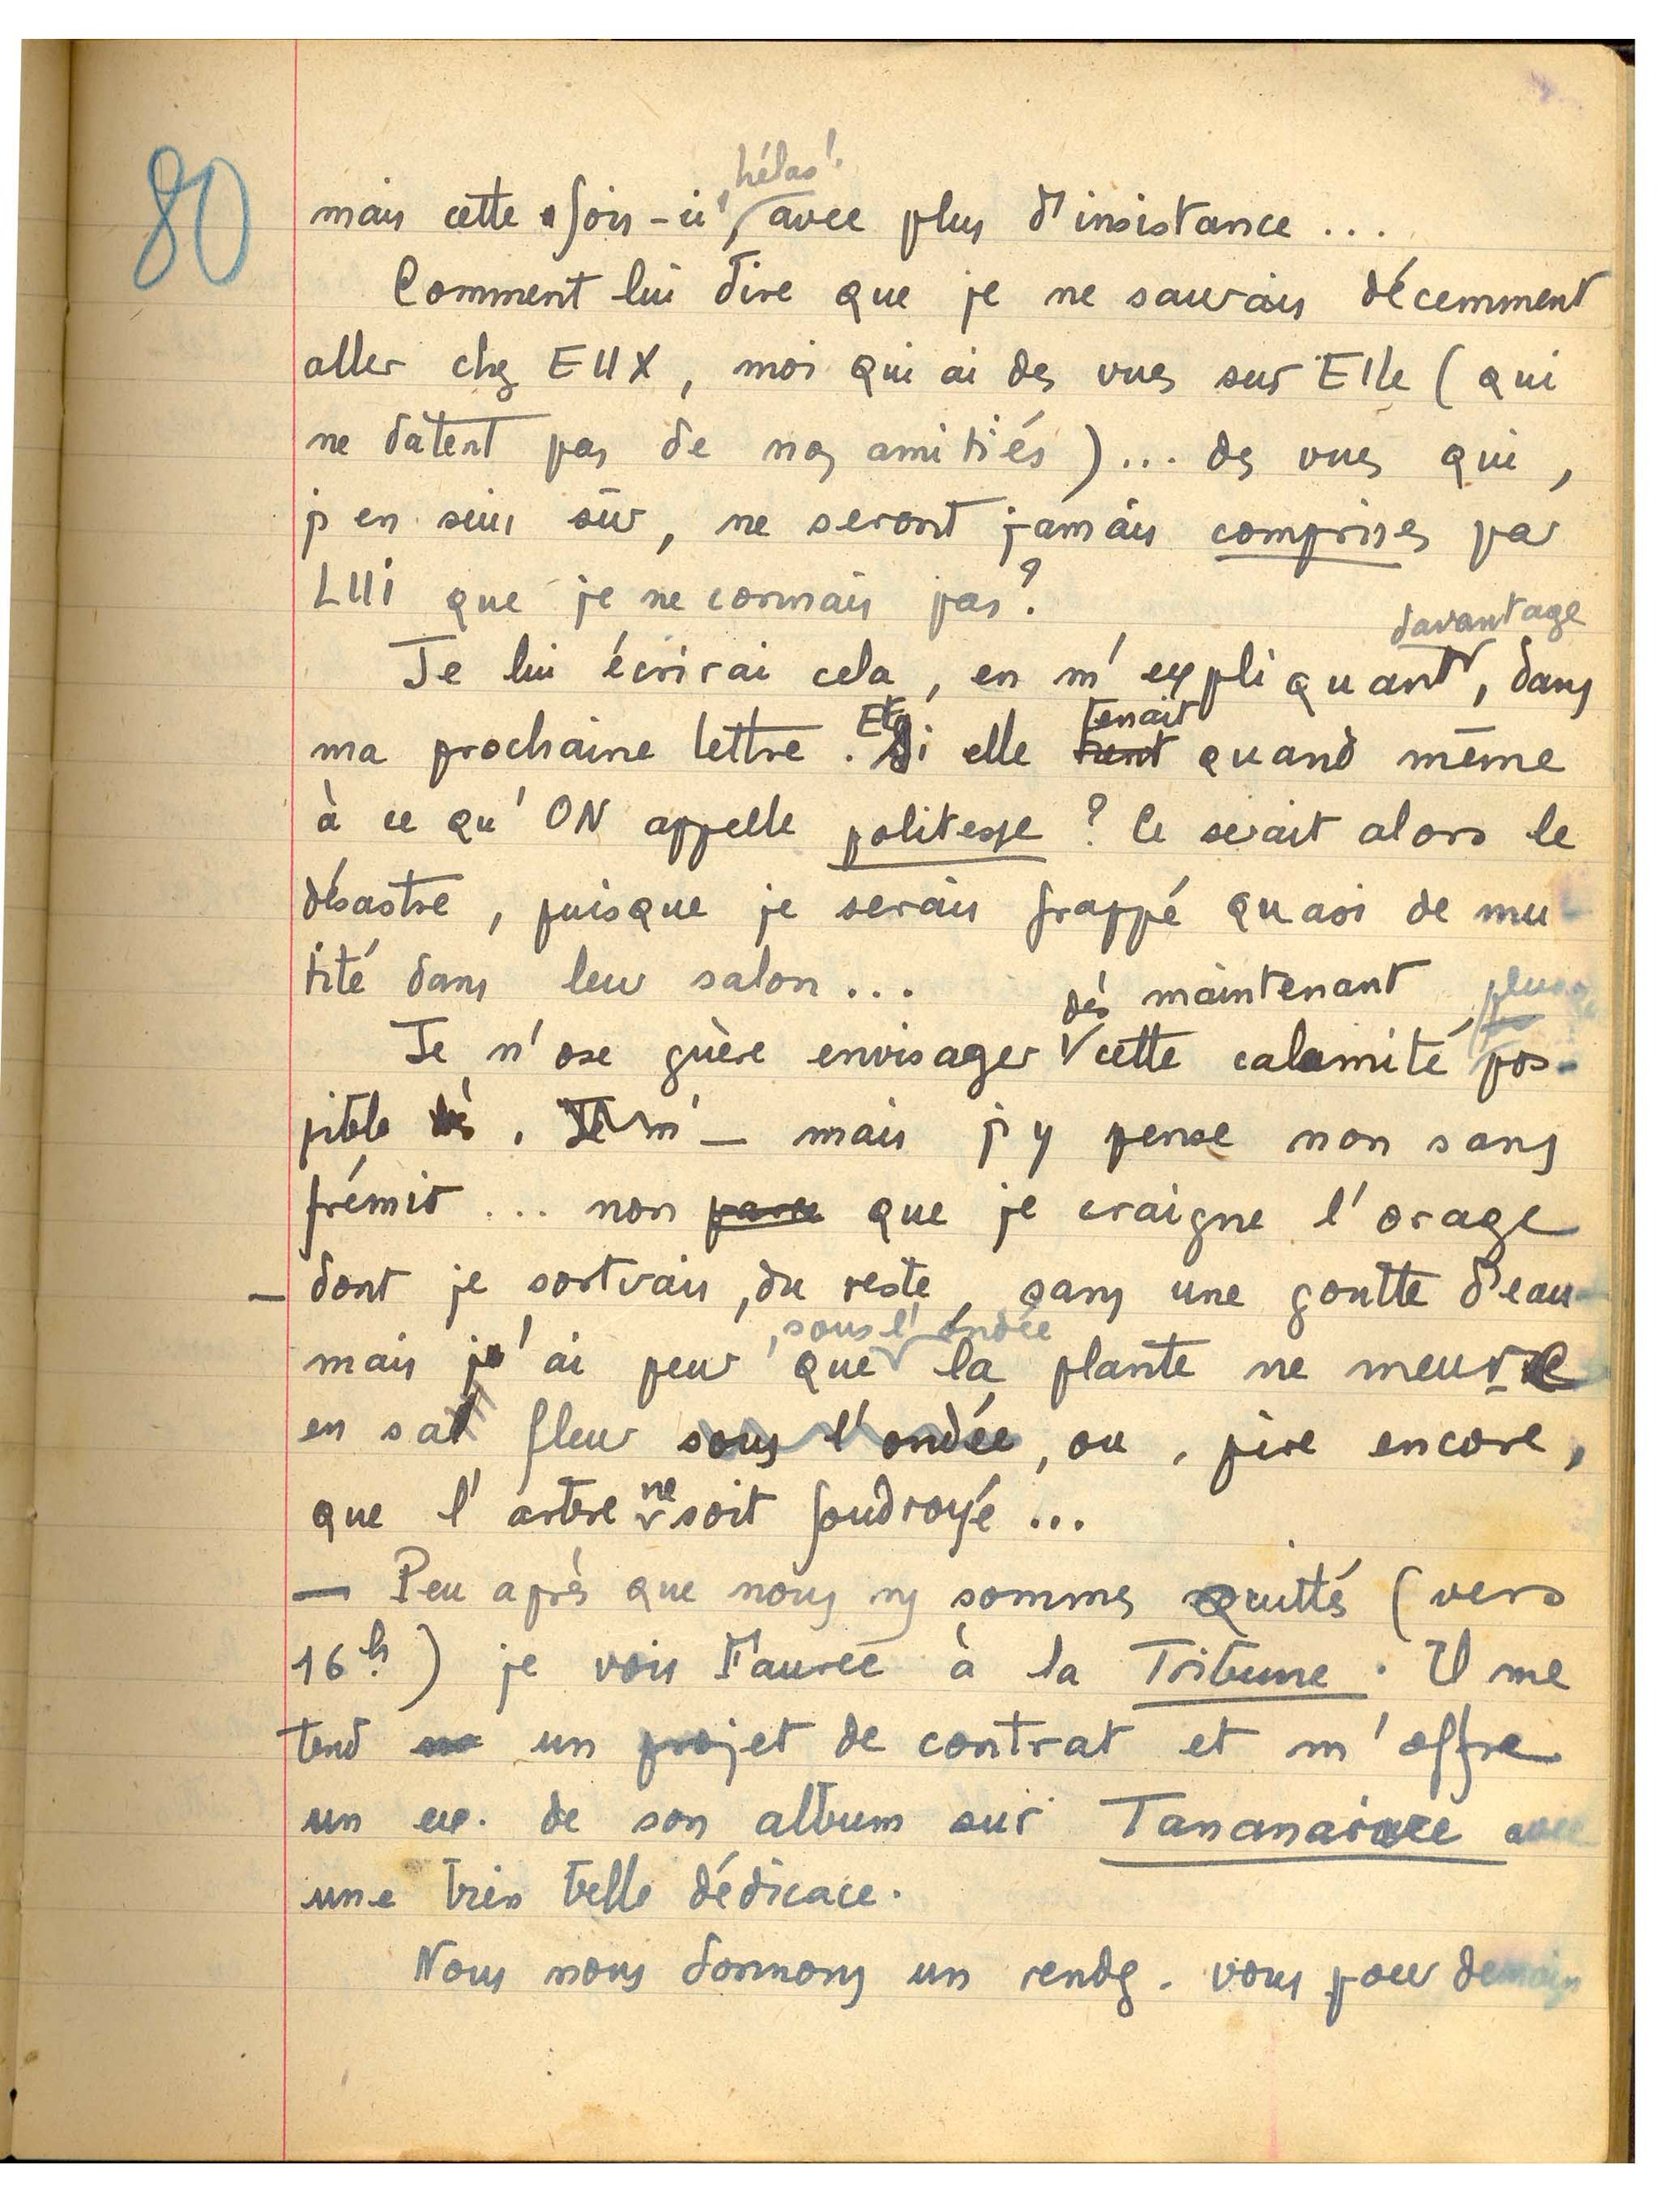 80
hélas!
mais cette fois-ci, avec plus d'insistance ...
Comment lui dire que je ne saurais décemment
aller chez EUX, moi qui ai des vues sur Elle (qui
ne datent pas de nos amitiés) ... des vues qui,
j'en suis sûr, ne seront jamais comprises par
LUI que je ne connais pas?
davantage
Je lui écrirai cela, en m'expliquant, dans
Et tenait
ma prochaine lettre. si elle tient quand même
à ce qu'ON appelle politesse ? Ce serait alors le
désastre, puisque je serais frappé quasi de mu-
tité dans leur salon ...
dès maintenant, plus
Je n'ose guère envisager cette calamité pos-
sible dès. Je m' — mais j'y pense non sans
frémir ... non parce que je craigne l'orage
— dont je sortirais, du reste, sans une goutte d'eau —
, sous l'ondée
mais j'ai peur que la plante ne meure
en sa fleur sous l'ondée, ou, pire encore,
ne
que l'arbre soit foudroyé ...
— Peu après que nous ns sommes quittés (vers
16h) je vois Faurec à la Tribune. Il me
tend un projet de contrat et m'offre
un ex. de son album sur Tananarive avec
une très belle dédicace.
Nous nous donnons un rendz. vous pour demain